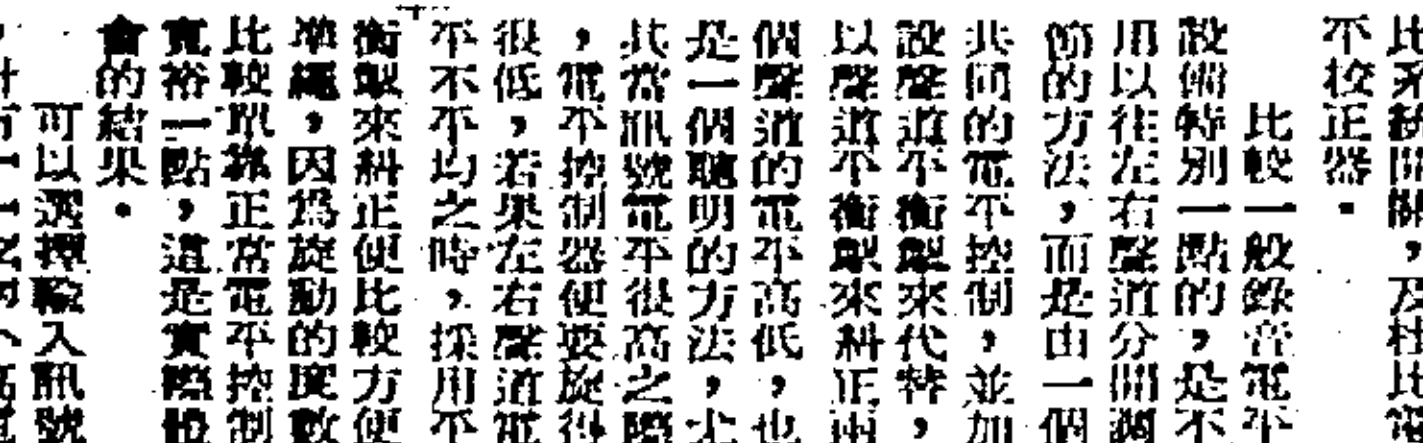 比系統開關，及杜比電
不校正器。
比較一般錄音電平
設備特別一點的，是不
用以往左右聲道分開調
節的方法，而是由一個
共同的電平控制，並加
設聲道平衡掣來代替，
以聲道平衡掣來糾正兩
個聲道的電平高低，也
是一個聰明的方法，尤
其當訊號電平很高之際
，電平控制器便要旋得
很低，若果左右聲道電
平不平均之時，採用平
衡掣來糾正便比較方便
準繩，因為旋動的度數
比較單靠正常電平控制
寬裕一點，這是實際體
會的結果。
可以選擇輸入訊號